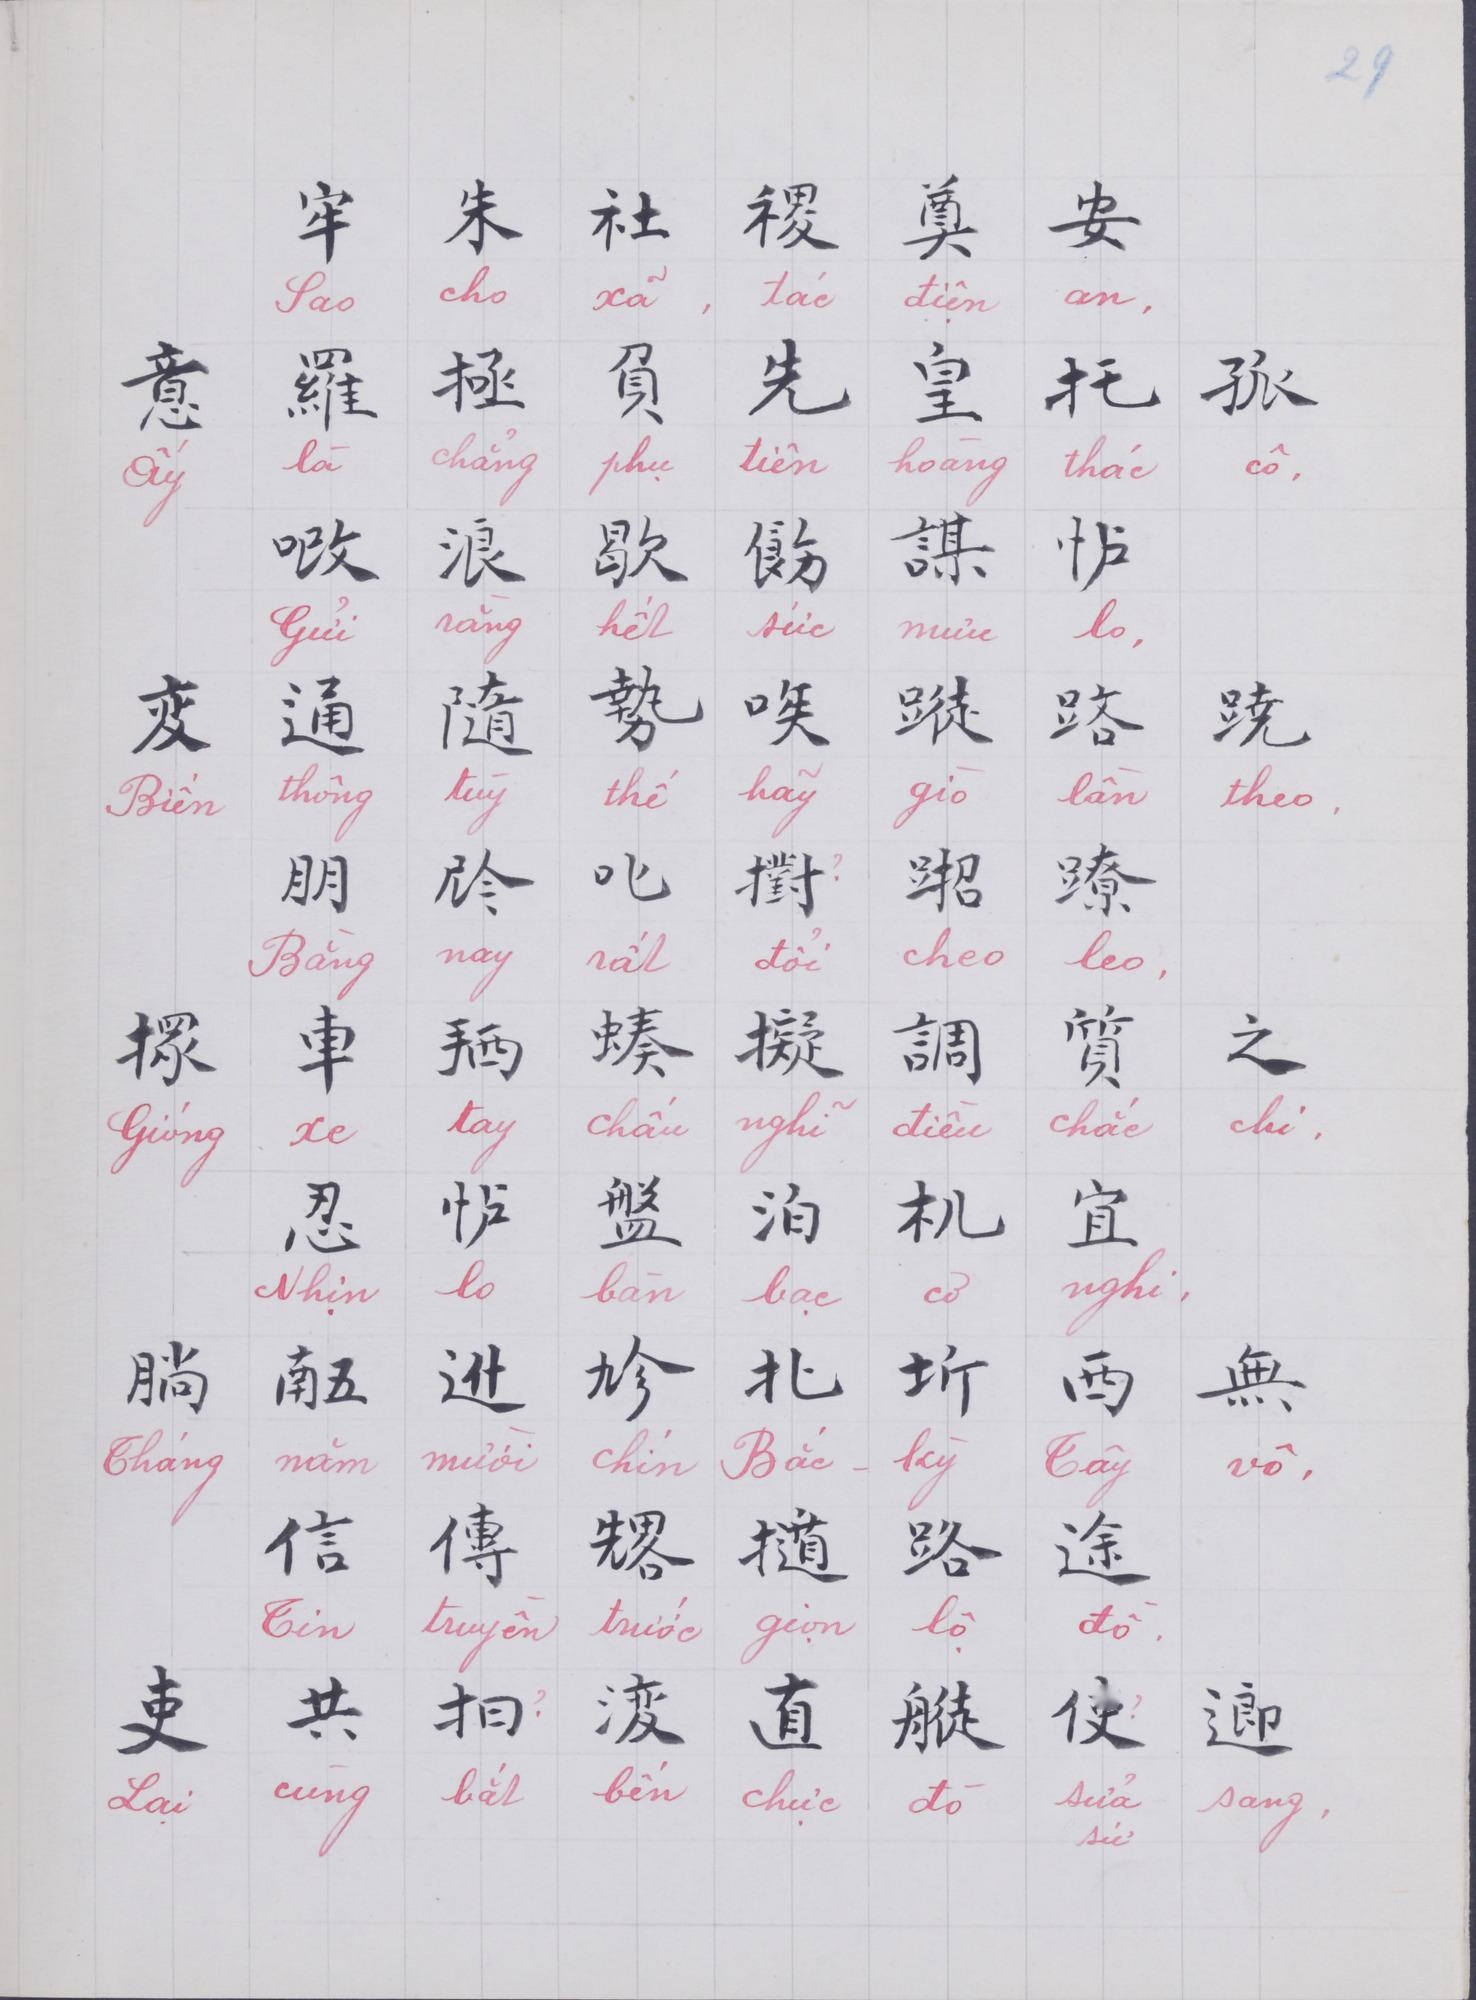 29
牢 朱 社 稷 奠 安
Sao cho xã, tác điện an,
意 羅 極 負 先 皇 托 孤
Ấy là chẳng phụ tiên hoàng thác cô,
浪 歇 謀
Gửi rằng hết sức mưu lo,
变 通 隨 勢 唉 蹤 路 蹺
Biến thông tuỳ thế hãy giò lần theo,
朋 ?
Bằng nay rất đổi cheo leo,
車 擬 調 質 之
Gióng xe tay chấu nghĩ điều chắc chi,
忍 盤 泊 机 宜
Nhịn lo bàn bạc cơ nghi,
𦙫 𠄼 圻 西 無
Tháng năm mười chín Bắc-kỳ Tây vô,
信 傳 路 途
Tin truyền trước giọn lộ đồ,
吏 共 抇? 直 使? 𨖅
Lại cùng bắt bến chực đò sửa sang,
sứ